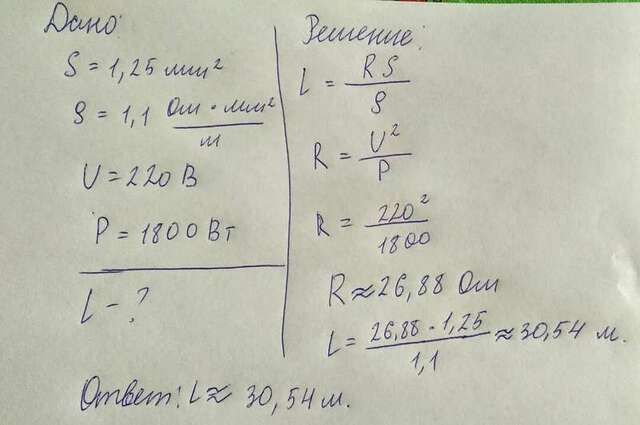 Дано:
S = 1,25 мм²
ρ = 1,1 Ом · мм²/м
U = 220 В
P = 1800 Вт
L - ?
Решение:
L = RS/ρ
R = U²/P
R = 220²/1800
R ≈ 26,88 Ом
L = 26,88 · 1,25/1,1 ≈ 30,54 м.
Ответ: L ≈ 30,54 м.